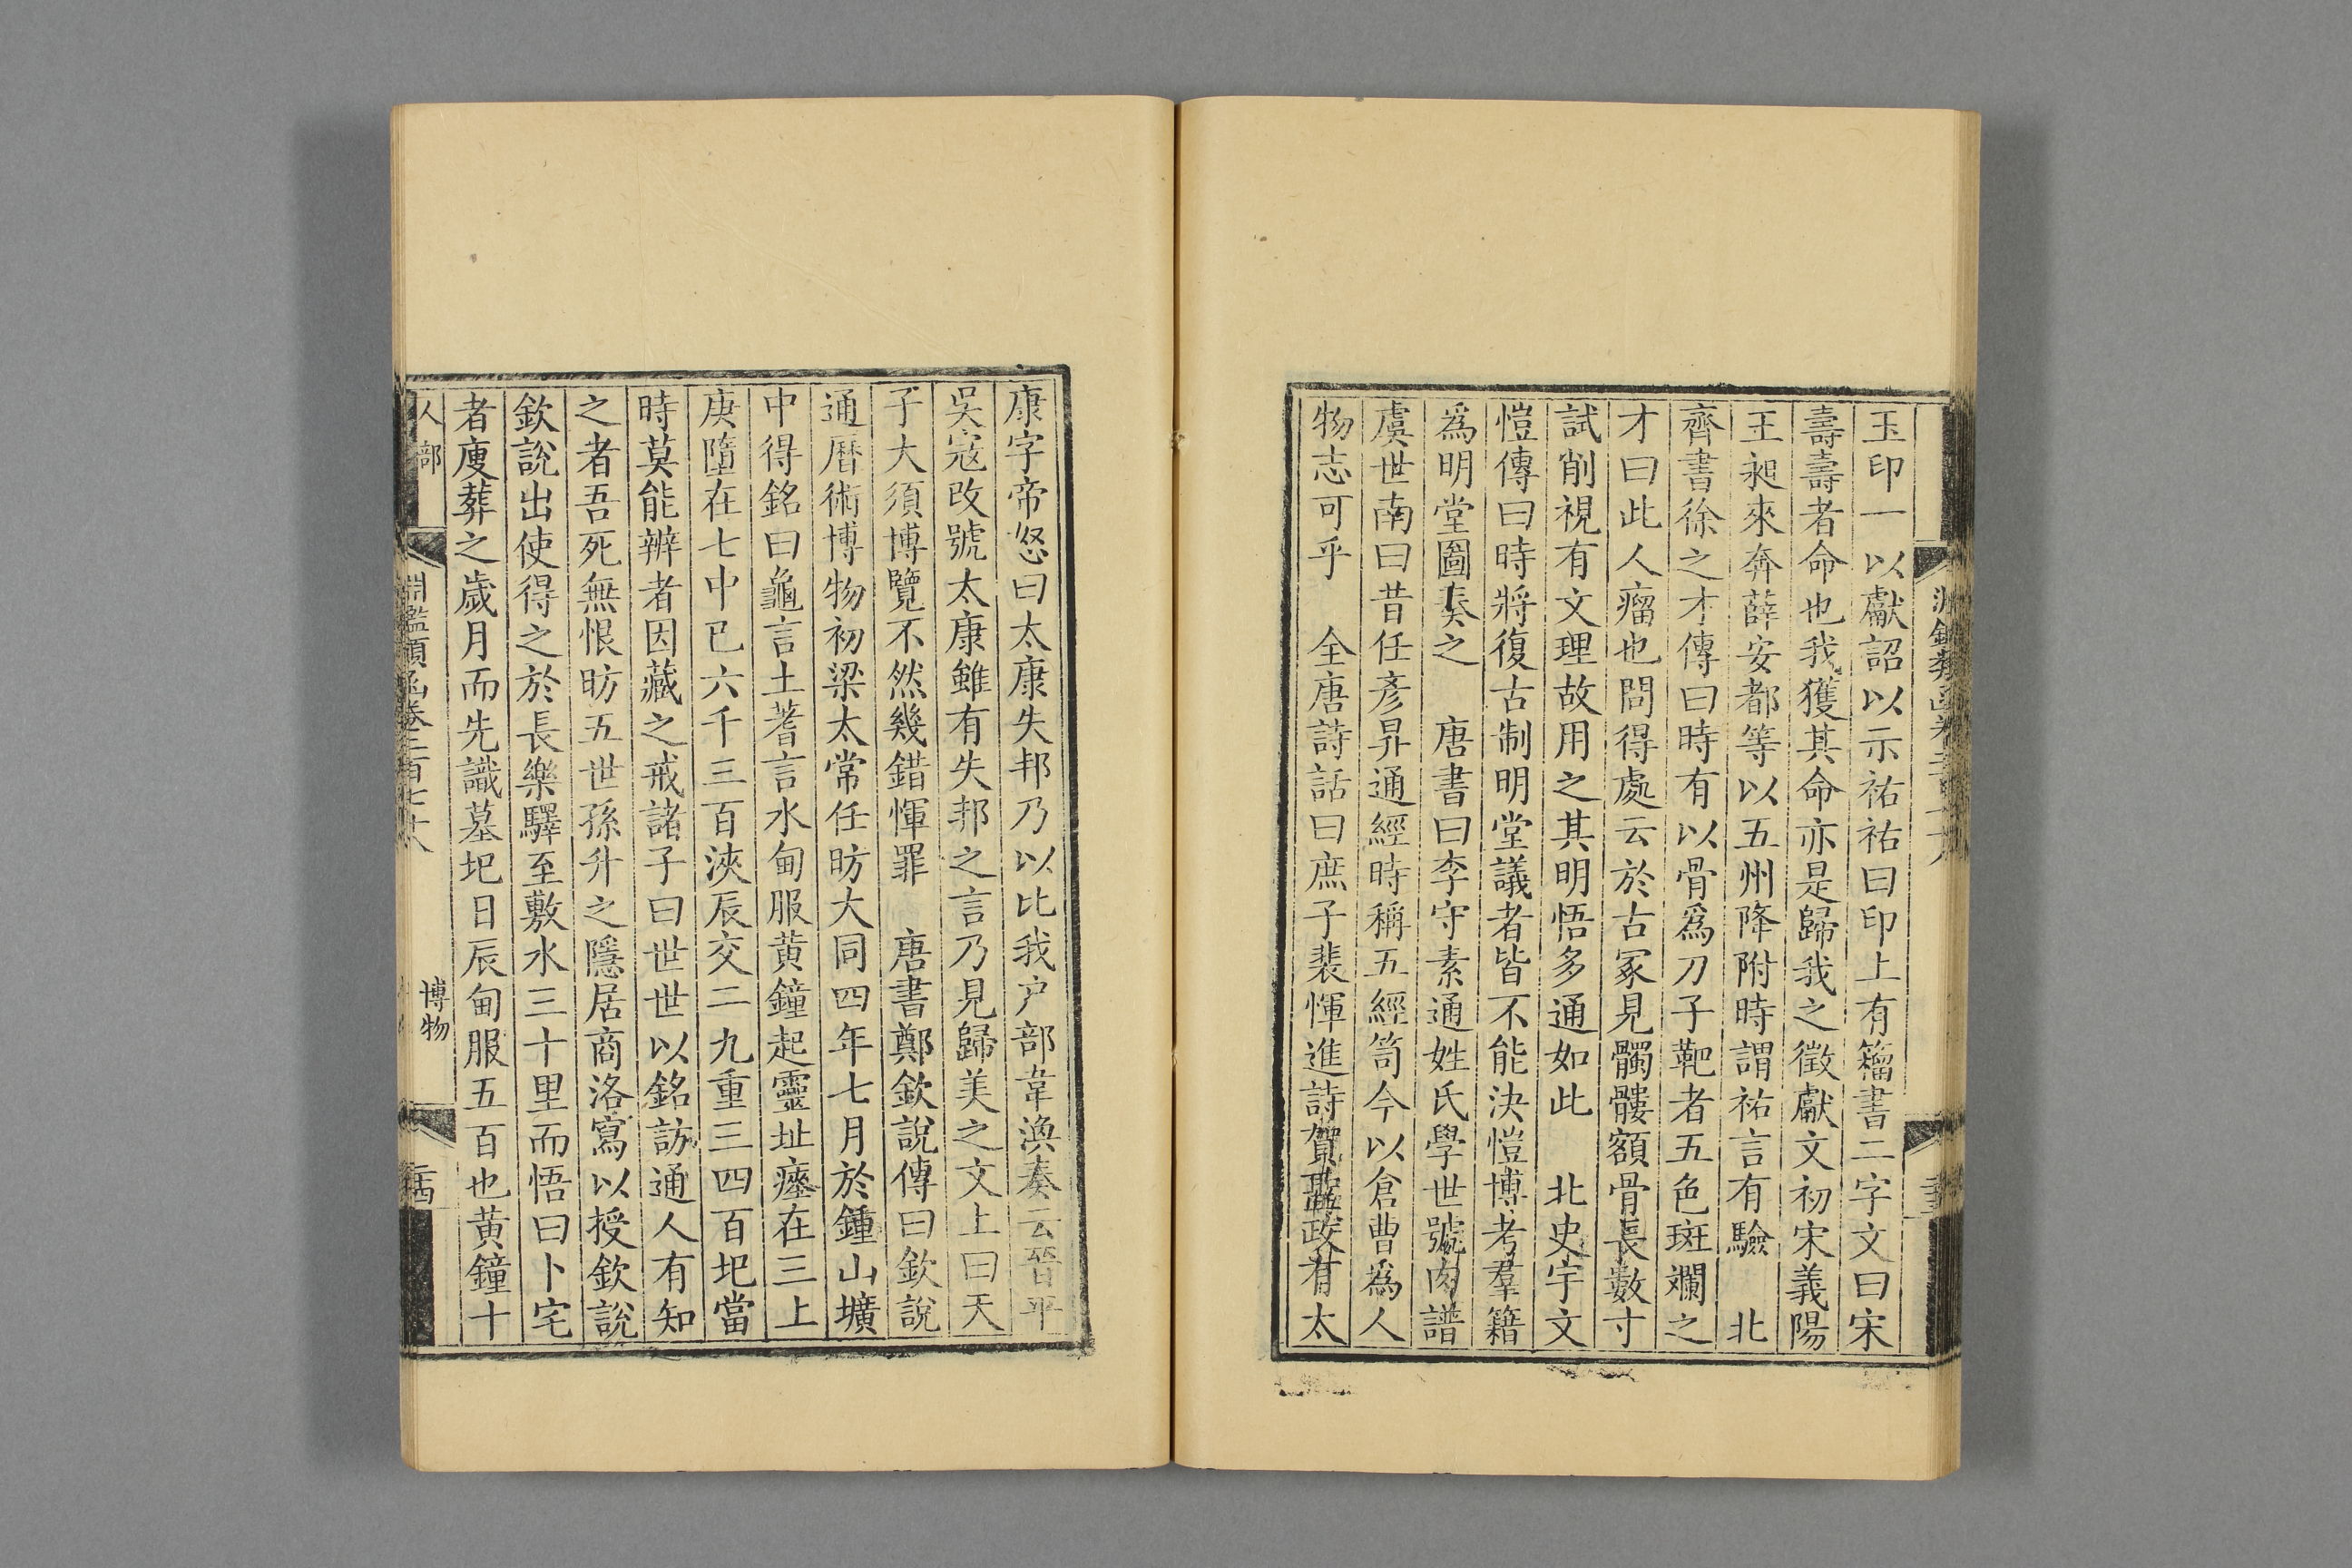 玉印一以獻詔以示祐祐曰印上有籀書二字文曰宋
壽壽者命也我獲其命亦是歸我之徵獻文初宋義陽
王昶來奔薛安都等以五州降附時謂祐言有驗　北
齊書徐之才傳曰時有以骨爲刀子靶者五色斑斕之
才曰此人瘤也問得處云於古冢見髑髏額骨長數寸
試削視有文理故用之其明悟多通如此　北史宇文
愷傳曰時將復古制明堂議者皆不能決愷博考羣籍
爲明堂圖奏之　唐書曰李守素通姓氏學世號肉譜
虞世南曰昔任彥昇通經時稱五經笥今以倉曹爲人
物志可乎　全唐詩話曰庶子裴惲進詩賀聖政有太
康字帝怒曰太康失邦乃以比我户部韋澳奏云晉平
吳寇改號太康雖有失邦之言乃見歸美之文上曰天
子大須博覽不然幾錯惲罪　唐書鄭欽說傳曰欽說
通曆術博物初梁太常任昉大同四年七月於鍾山壙
中得銘曰龜言土蓍言水甸服黄鐘起靈址瘞在三上
庚墮在七中巳六千三百浹辰交二九重三四百圯當
時莫能辨者因藏之戒諸子曰世世以銘訪通人有知
之者吾死無恨昉五世孫升之隱居商洛寫以授欽說
欽說出使得之於長樂驛至敷水三十里而悟曰卜宅
者廋葬之歲月而先識墓圯日辰甸服五百也黄鐘十
人部
淵鑑類函卷三百二十八
博物